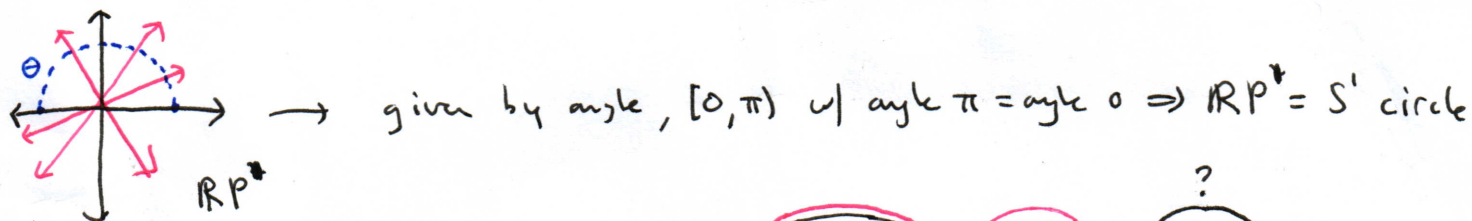 θ
→ given by angle, [0,π) w/ angle π = angle 0 ⇒ RP = S¹ circle
RP
?